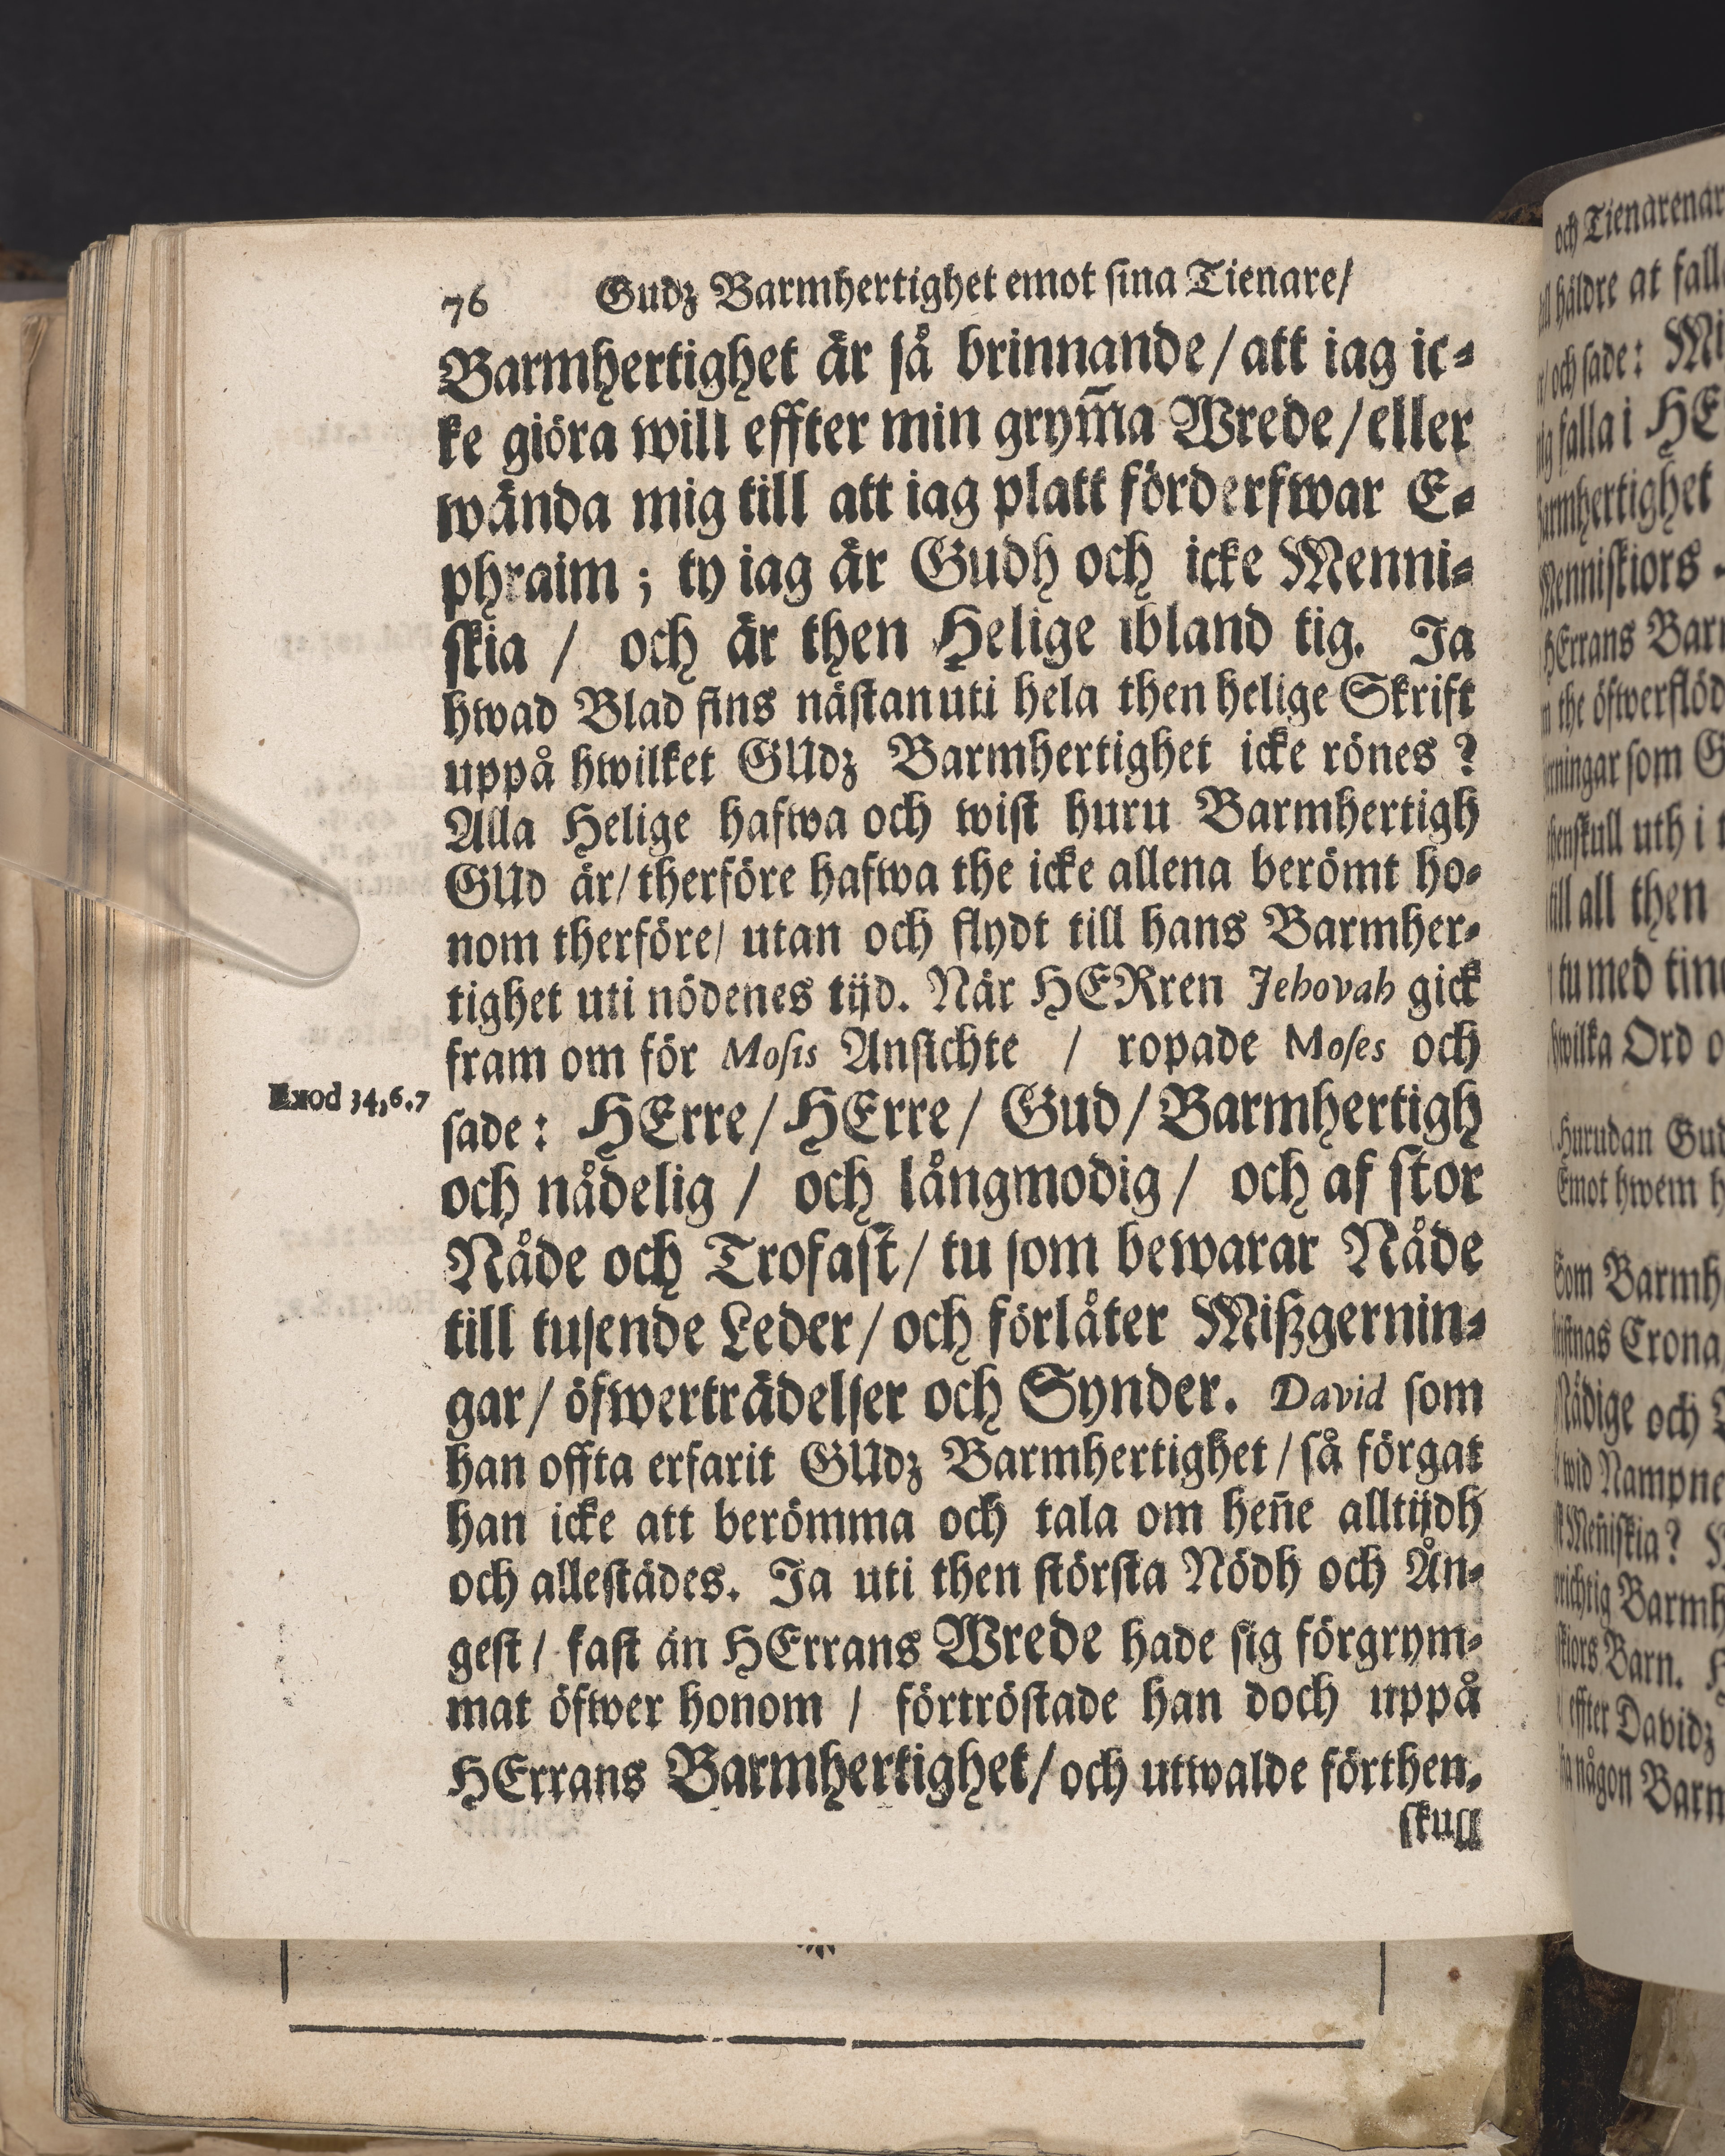 76 Gudz Barmhertighet emot sina Tienare/
Barmhertighet är så brinnande/att iag ic-
ke giöra will effter min grym̃a Wrede/eller
wända mig till att iag platt förderfwar E-
phraim ; ty iag är Gudh och icke Menni-
skia / och är then Helige ibland tig. Ja
hwad Blad fins nästan uti hela then helige Skrift
uppå hwilket GUdz Barmhertighet icke rönes ?
Alla Helige hafwa och wist huru Barmhertigh
GUd är/therföre hafwa the icke allena berömt ho-
nom therföre/ utan och flydt till hans Barmher-
tighet uti nödenes tijd. När HERren Jehovah gick
fram om för Mosis Ansichte / ropade Moses och
Exod 34,6.7
sade: HErre/HErre/ Gud/Barmhertigh
och nådelig / och långmodig/ och af stor
Nåde och Trofast/ tu som bewarar Nåde
till tusende Leder/och förlåter Mißgernin-
gar/ öfwerträdelser och Synder. David som
han offta erfarit GUdz Barmhertighet/så förgat
han icke att berömma och tala om hen̄e alltijdh
och allestädes. Ja uti then största Nödh och Ån-
gest/ fast än HErrans Wrede hade sig förgrym-
mat öfwer honom / förtröstade han doch uppå
HErrans Barmhertighet/och utwalde förthen-
skull
och Tienarenar
häldre at fall
och sade: Mi
falla i HE
Barmhertighet
Menniskiors
HErrans Barm
the öfwerflöd
som G
uth i
till all then
tu med
hwilka Ord o
Hurudan Gud
Emot hwem h
Som Barmh
Crona
Nådige och
wid Nampne
Men̄iskia?
Barmh
Barn.
effter Davidz
någon Barm